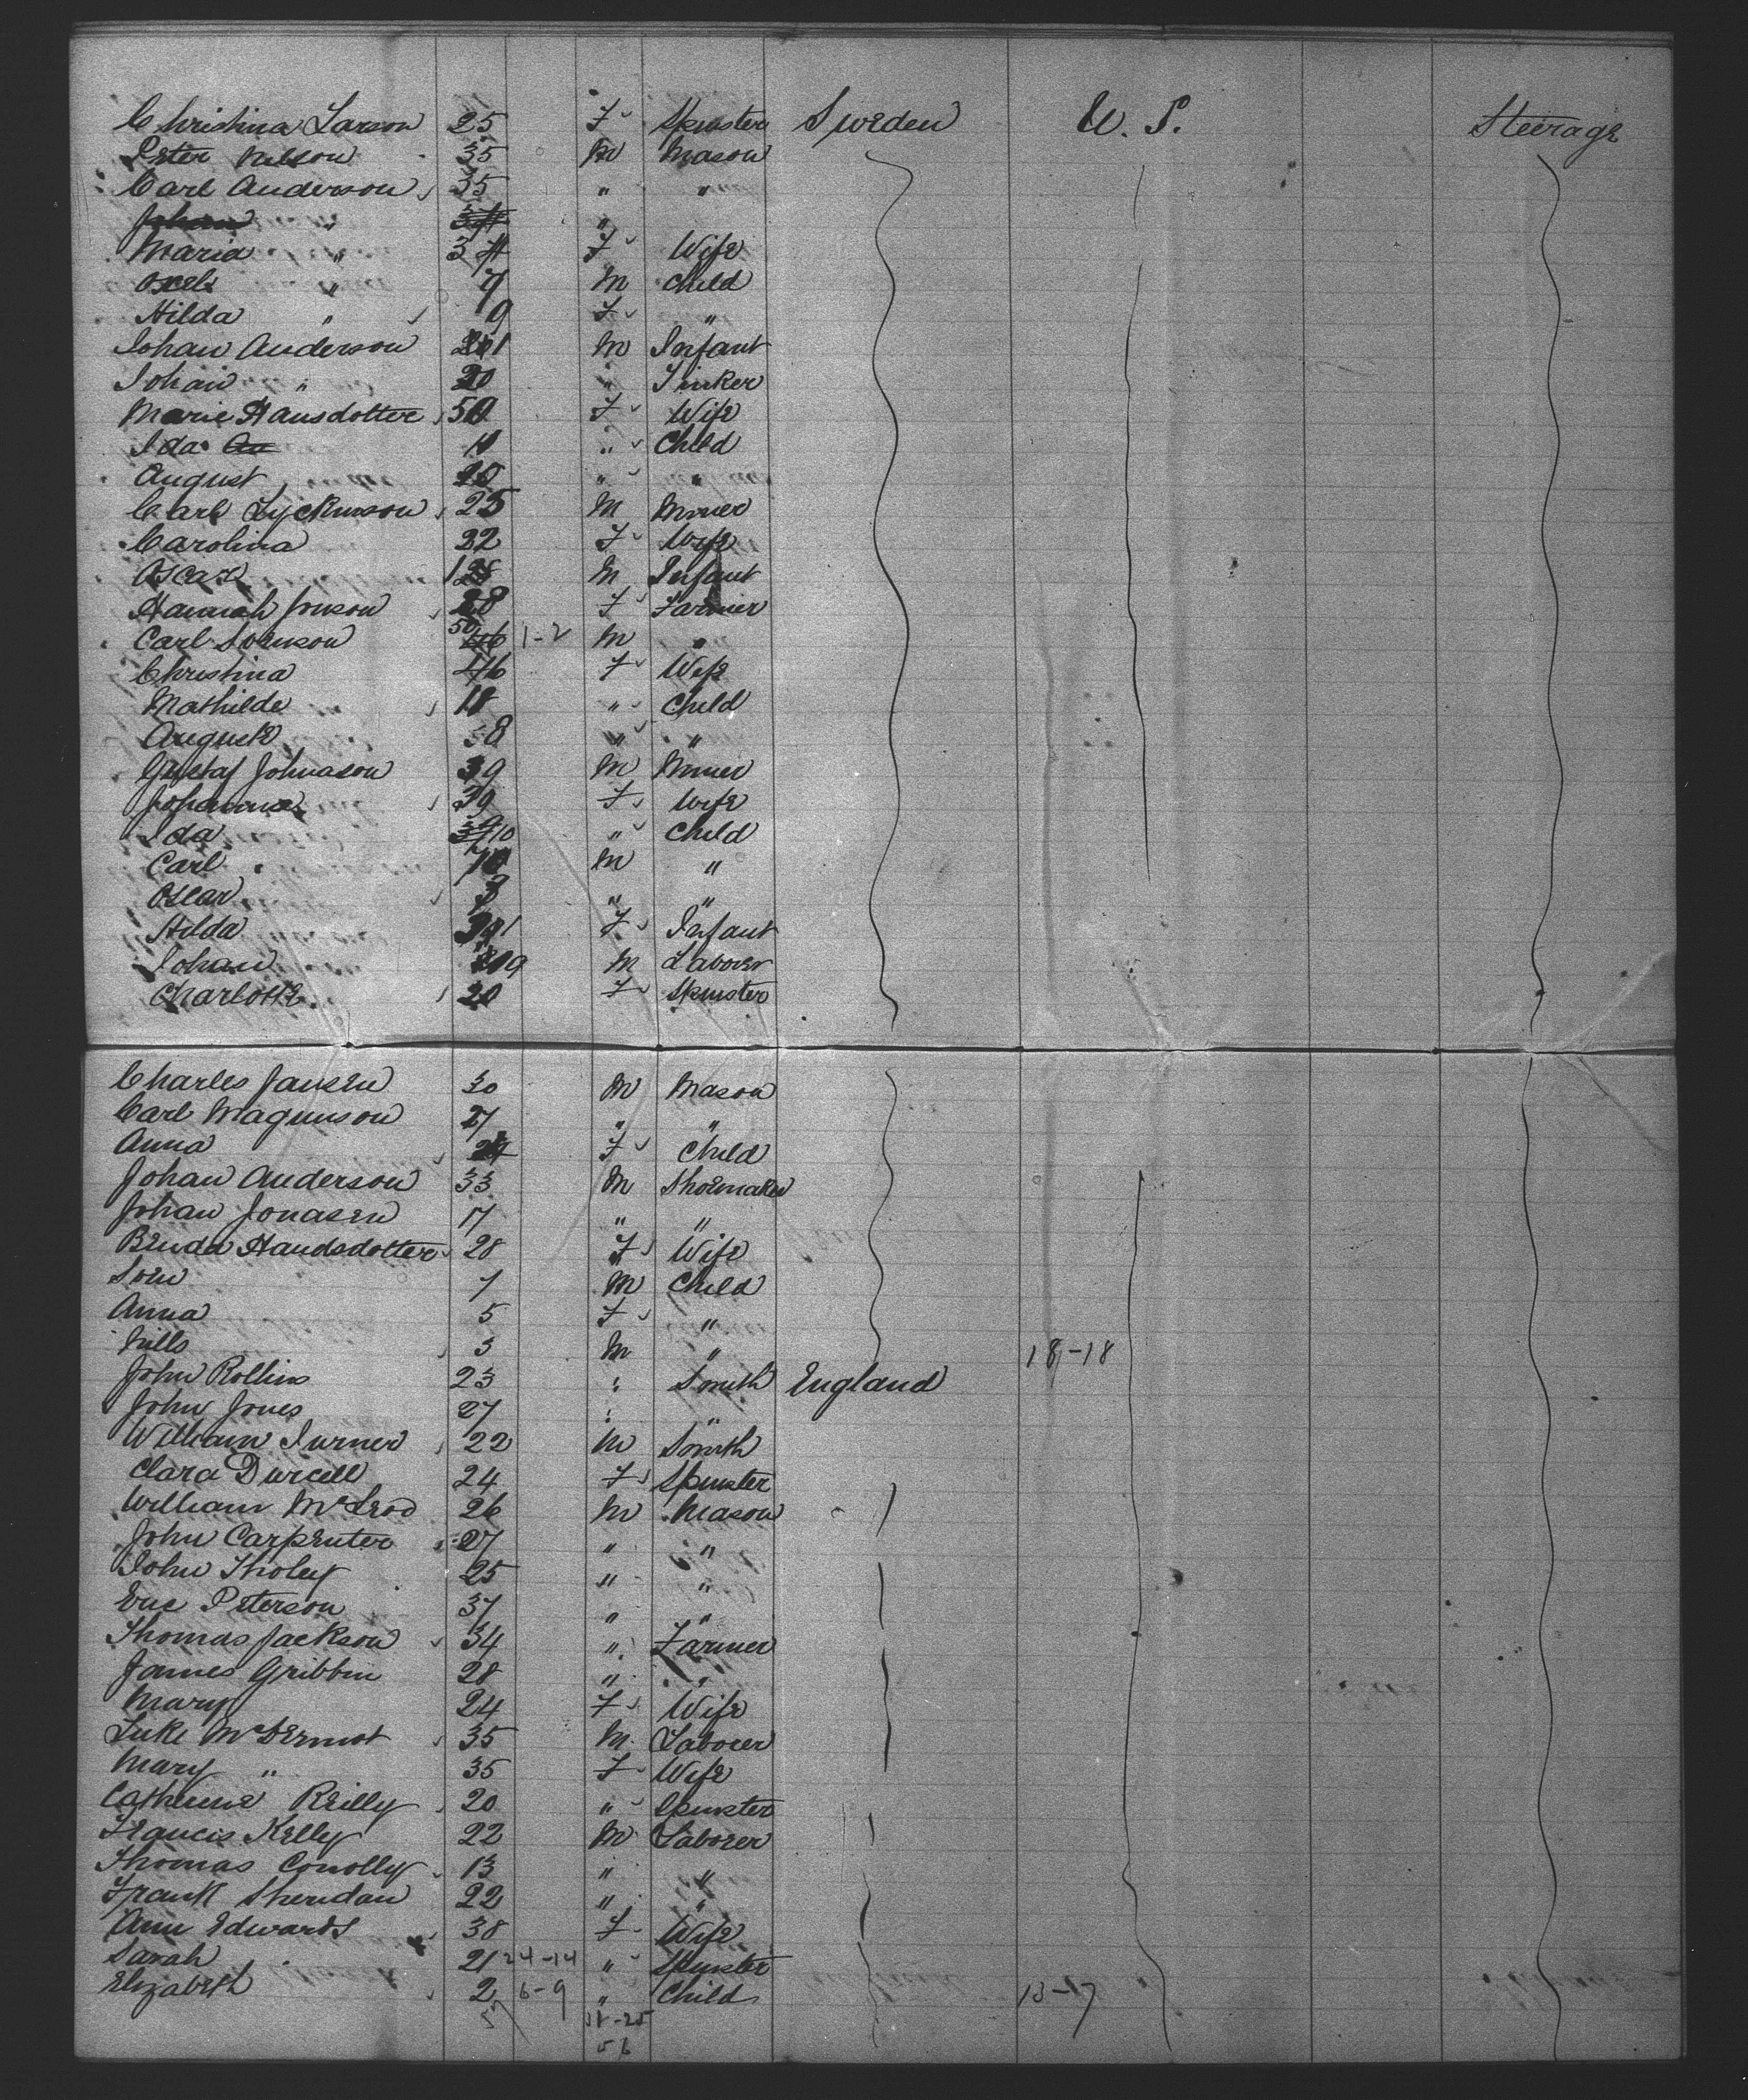 Christina Larson 25 F Spinster Sweden U. S. Steerage
Peter Nelson 35 M Mason
Carl Anderson 35 " "
Johan " 34 "
Maria " 34 F Wife
Axel " 7 M Child
Hilda " 9 F "
Johan Anderson 1 M Infant
Johan " 20 " Tinker
Marie Hansdotter 50 F Wife
Ida 11 " Child
August 20 " "
Carl 25 M Miner
Carolina 22 F Wife
Oscar M Infant
Hannah Jonson 28 F Farmer
Carl 50 46 1-2 M "
Christina 46 F Wife
Mathilde 18 " Child
August 8 " "
Gustaf Johnason 39 M Miner
Johanna 39 F Wife
Ida 10 " Child
Carl " M "
Oscar " "
Hilda 1 F Infant
Johan 19 M Laborer
Charlotte 20 F Spinster
Charles Jansen 30 M Mason
Carl Magunson 27 " "
Anna F Child
Johan Anderson 33 M Shoemaker
Johan Jonasen 17 " "
Benda Handsdotter 28 F Wife
Soen 7 M Child
Anna 5 F "
Nills 3 M " 18-18
John Rollins 23 : Smith England
John Jones 27 : "
William Turner 22 M Smith
Clara Durcell 24 F Spinster
William McLeod 26 M Mason
John Carpenter 27 " "
John 25 " "
Eric Peterson 37 " "
Thomas Jackson 34 " Farmer
James Gribbin 28 " "
Mary 24 F Wife
Luke McDermot 35 M Laborer
Mary " 35 F Wife
Catherine Reilly 20 " Spinster
Francis Kelly 22 M Laborer
Thomas Conolly 13 " "
Frank Sheridan 22 " "
Ann Edwards 38 F Wife
Sarah 21 24-14 " Spinster
Elizabeth 2 6-9 " Child 13-17
57 31-25
56